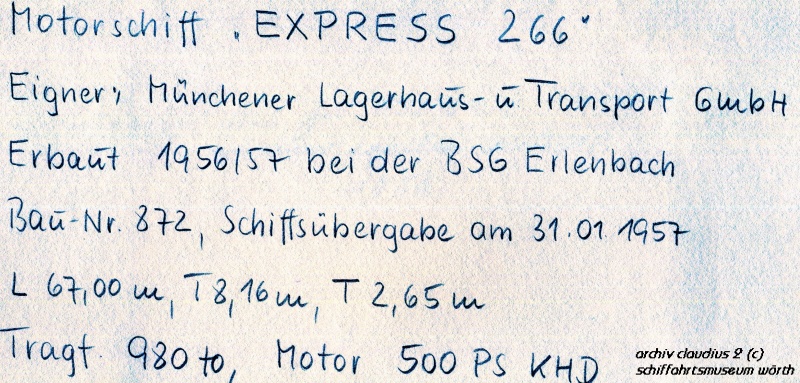 Motorschiff „EXPRESS 266"
Eigner: Münchener Lagerhaus- u Transport GmbH
Erbaut 1956/57 bei der BSG Erlenbach
Bau-Nr. 872, Schiffsübergabe am 31.01.1957
L 67,00 m, T 8,16 m, T 2,65 m
Tragf. 980 to, Motor 500 PS KHD
archiv claudius 2 (c)
schiffahrtsmuseum wörth